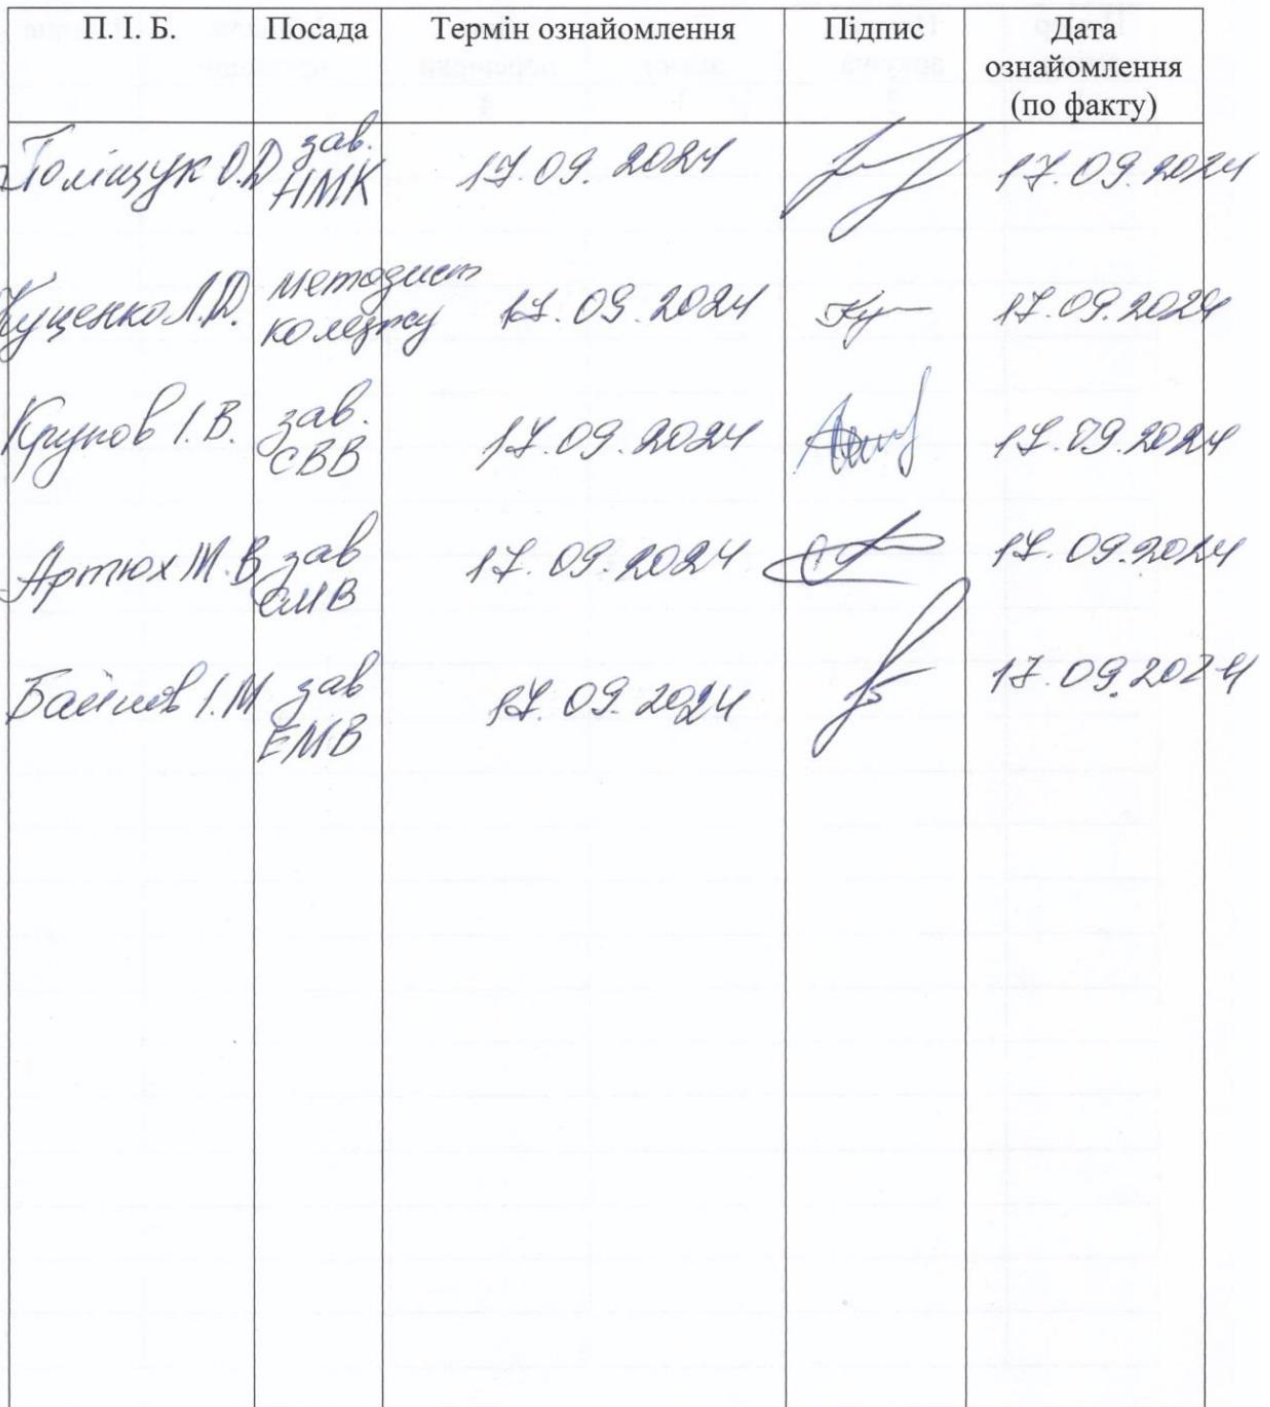 П. І. Б. Посада Термін ознайомлення Підпис Дата
ознайомлення
(по факту)
Поліщук О.Д. зав. 17.09.2024 17.09.2024
НМК
Куценко Л.Д. методист 17.09.2024 17.09.2024
коледжу
Крупов І.В. зав. 17.09.2024 17.09.2024
СВВ
Артюх М.В. зав 17.09.2024 17.09.2024
ЕМВ
І.М зав 17.09.2024 17.09.2024
ЕМВ